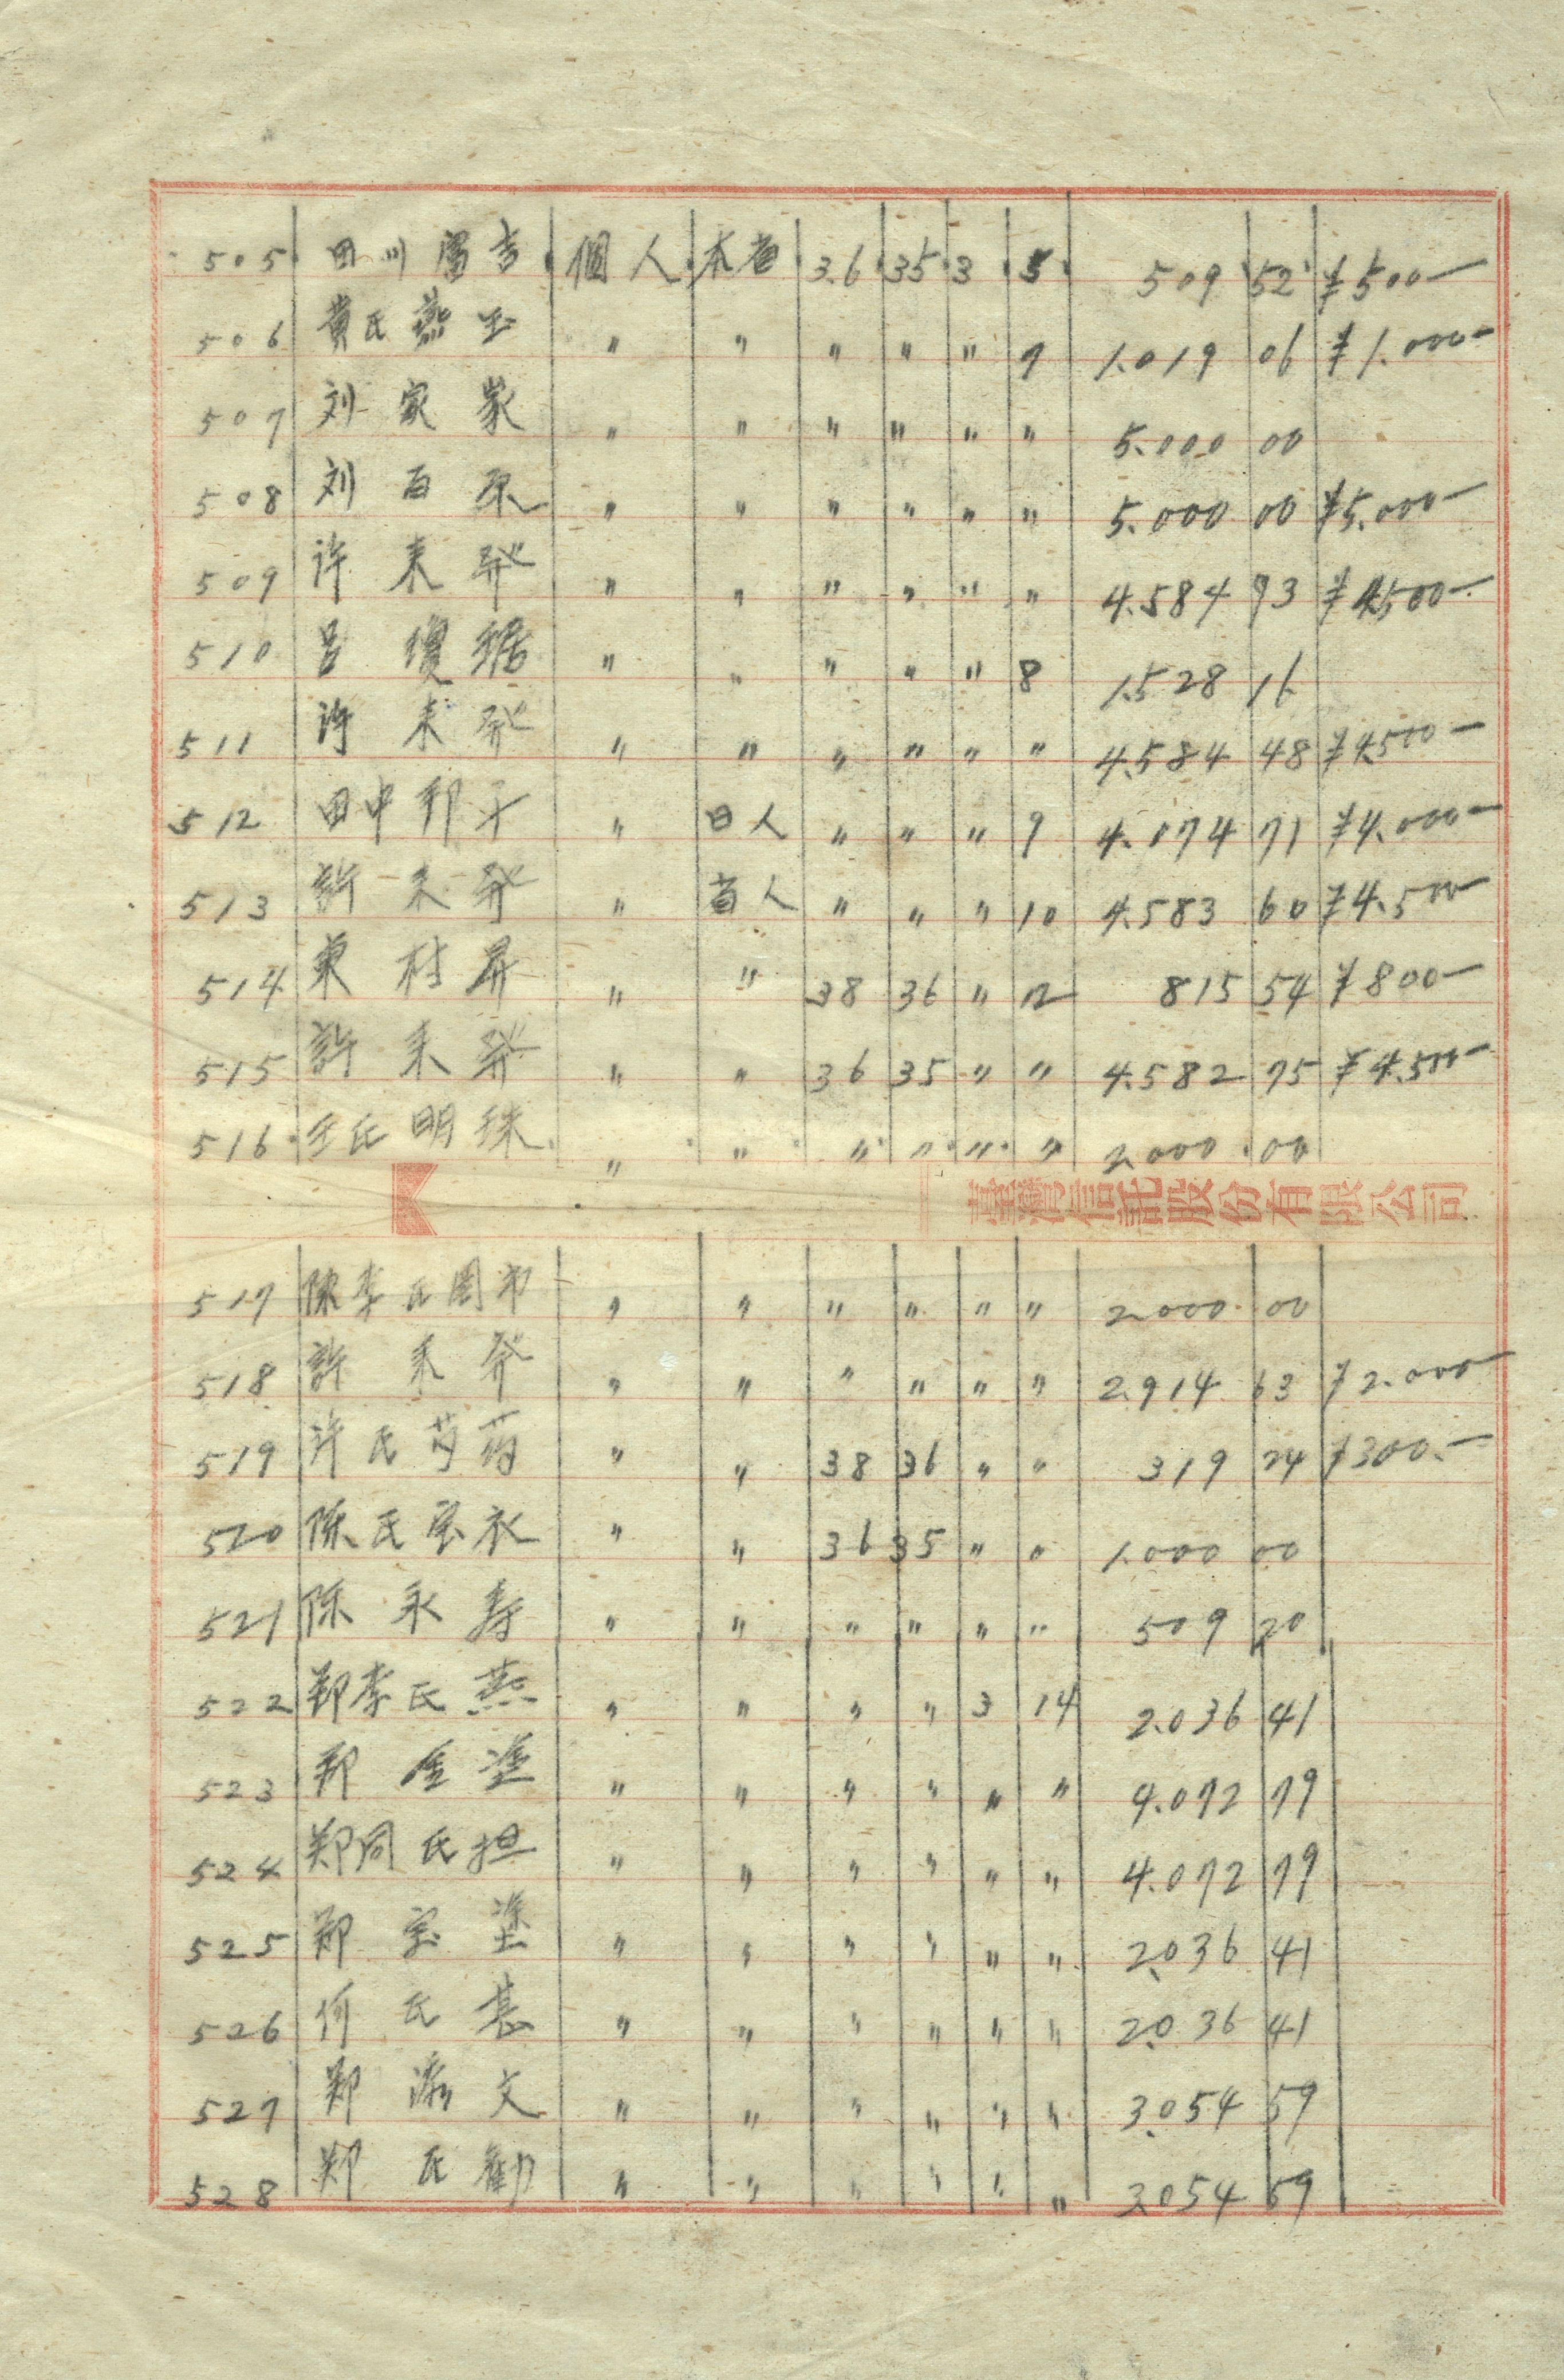 505 田川富吉 個人 本省 36 35 3 5 509 52 ¥500—
506 黄氏燕玉 〃 〃 〃 〃 〃 7 1.019 06 ¥1.000—
507 刘家 〃 〃 〃 〃 〃 〃 5.000 00
508 刘百 〃 〃 〃 〃 〃 〃 5.000 00 ¥5.000—
509 许来發 〃 〃 〃 〃 〃 〃 4.584 93 ¥4500—
510 吕瓊琚 〃 〃 〃 〃 〃 8 1.528 16
511 许来發 〃 〃 〃 〃 〃 〃 4.584 48 ¥4500—
512 田中邦子 〃 日人 〃 〃 〃 9 4.074 71 ¥4.000—
513 許来發 〃 省人 〃 〃 〃 10 4.583 60 ¥4.500—
514 東村昇 〃 〃 38 36 〃 12 815 54 ¥800—
515 許来發 〃 〃 36 35 〃 〃 4.582 75 ¥4.500—
516 王氏明珠 〃 〃 〃 〃 〃 〃 2.000 00
臺灣信託股份有限公司
517 陳李氏 〃 〃 〃 〃 〃 〃 2.000 00
518 許来發 〃 〃 〃 〃 〃 〃 2.914 63 ¥2.000—
519 许氏芍药 〃 〃 38 36 〃 〃 319 24 ¥300.—
520 陈氏宝衣 〃 〃 36 35 〃 〃 1.000 00
521 陈永寿 〃 〃 〃 〃 〃 〃 509 20
522 郑李氏燕 〃 〃 〃 〃 3 14 2.036 41
523 郑金塗 〃 〃 〃 〃 〃 〃 4.072 79
524 郑周氏担 〃 〃 〃 〃 〃 〃 4.072 79
525 郑宝塗 〃 〃 〃 〃 〃 〃 2.036 41
526 何氏甚 〃 〃 〃 〃 〃 〃 2.036 41
527 郑添文 〃 〃 〃 〃 〃 〃 3.054 59
528 郑氏勸 〃 〃 〃 〃 〃 〃 3.054 59